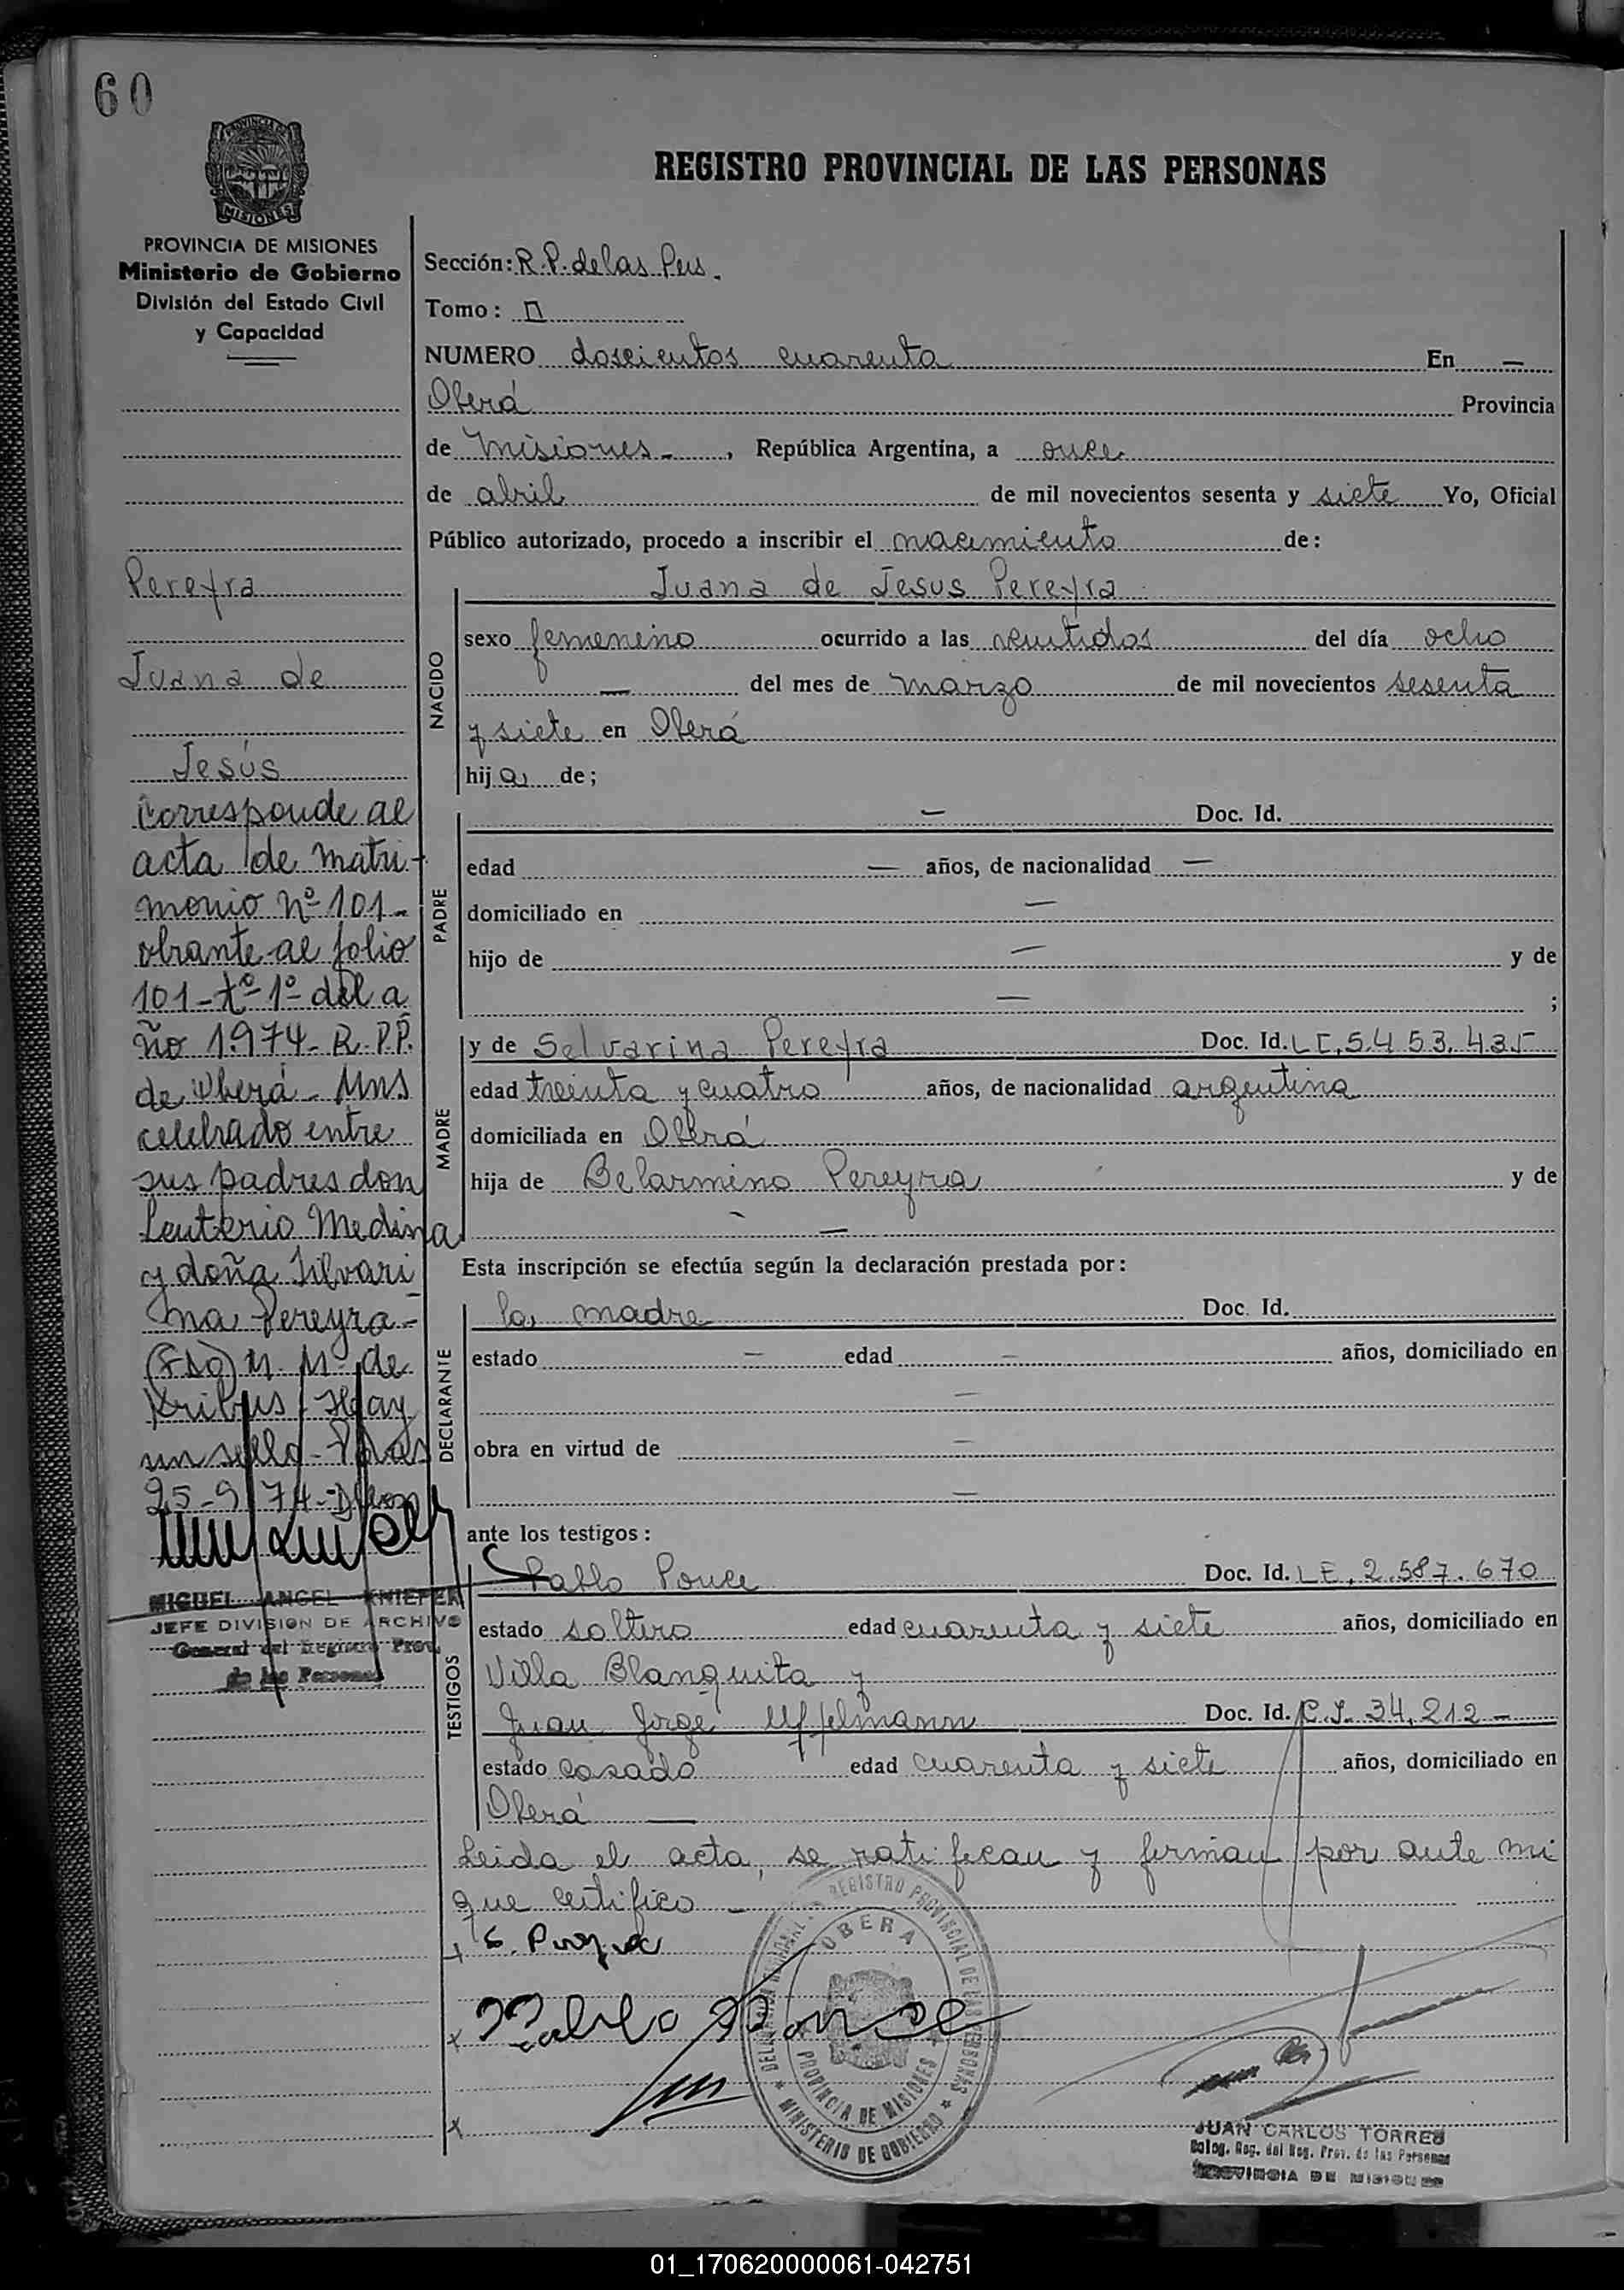 60
PROVINCIA DE MISIONES
Ministerio de Gobierno
División del Estado Civil
y Capacidad
Pereyra
Juana de
Jesús
Corresponde al
acta de matri-
monio nº 101-
obrante al folio
101-tº-1º del a
ño 1974- R.P.P.
de Oberá- Mns
celebrado entre
sus padres don
Leuterio Medina
y doña Silvari
na Pereyra-
(Fdo) M. M. de
Hay
un sello- Pdas
25-9-74-
MIGUEL ANGEL KNIEPER
JEFE DIVISION DE ARCHIVO
General del Registro Prov.
de las Personas
REGISTRO PROVINCIAL DE LAS PERSONAS
Sección: R.P. de las Pers.
Tomo: II
NUMERO doscientos cuarenta En —
Oberá Provincia
de Misiones-, República Argentina, a once
de abril de mil novecientos sesenta y siete Yo, Oficial
Público autorizado, procedo a inscribir el nacimiento de:
Juana de Jesus Pereyra
NACIDO
sexo femenino ocurrido a las veintidos del día ocho
— del mes de marzo de mil novecientos sesenta
y siete en Oberá
hija de;
PADRE
— Doc. Id.
edad — años, de nacionalidad —
domiciliado en —
hijo de — y de
— ;
MADRE
y de Selvarina Pereyra Doc. Id. LC. 5.453.435
edad treinta y cuatro años, de nacionalidad argentina
domiciliada en Oberá
hija de Belarmino Pereyra y de
—
Esta inscripción se efectúa según la declaración prestada por:
DECLARANTE
la madre Doc. Id.
estado — edad — años, domiciliado en
—
obra en virtud de —
—
ante los testigos:
TESTIGOS
Pablo Ponce Doc. Id. LE. 2.587.670
estado soltero edad cuarenta y siete años, domiciliado en
Villa Blanquita y
Juan Jorge Uffelmann Doc. Id. C.I. 34.212-
estado casado edad cuarenta y siete años, domiciliado en
Oberá —
Leida el acta, se ratifican y firman por ante mi
que certifico -
S.
Pablo Ponce
REGISTRO PROVINCIAL DE LAS PERSONAS
OBERA
PROVINCIA DE MISIONES
* MINISTERIO DE GOBIERNO *
JUAN CARLOS TORRES
Deleg. Reg. del Reg. Prov. de las Personas
PROVINCIA DE MISIONES
01_170620000061-042751